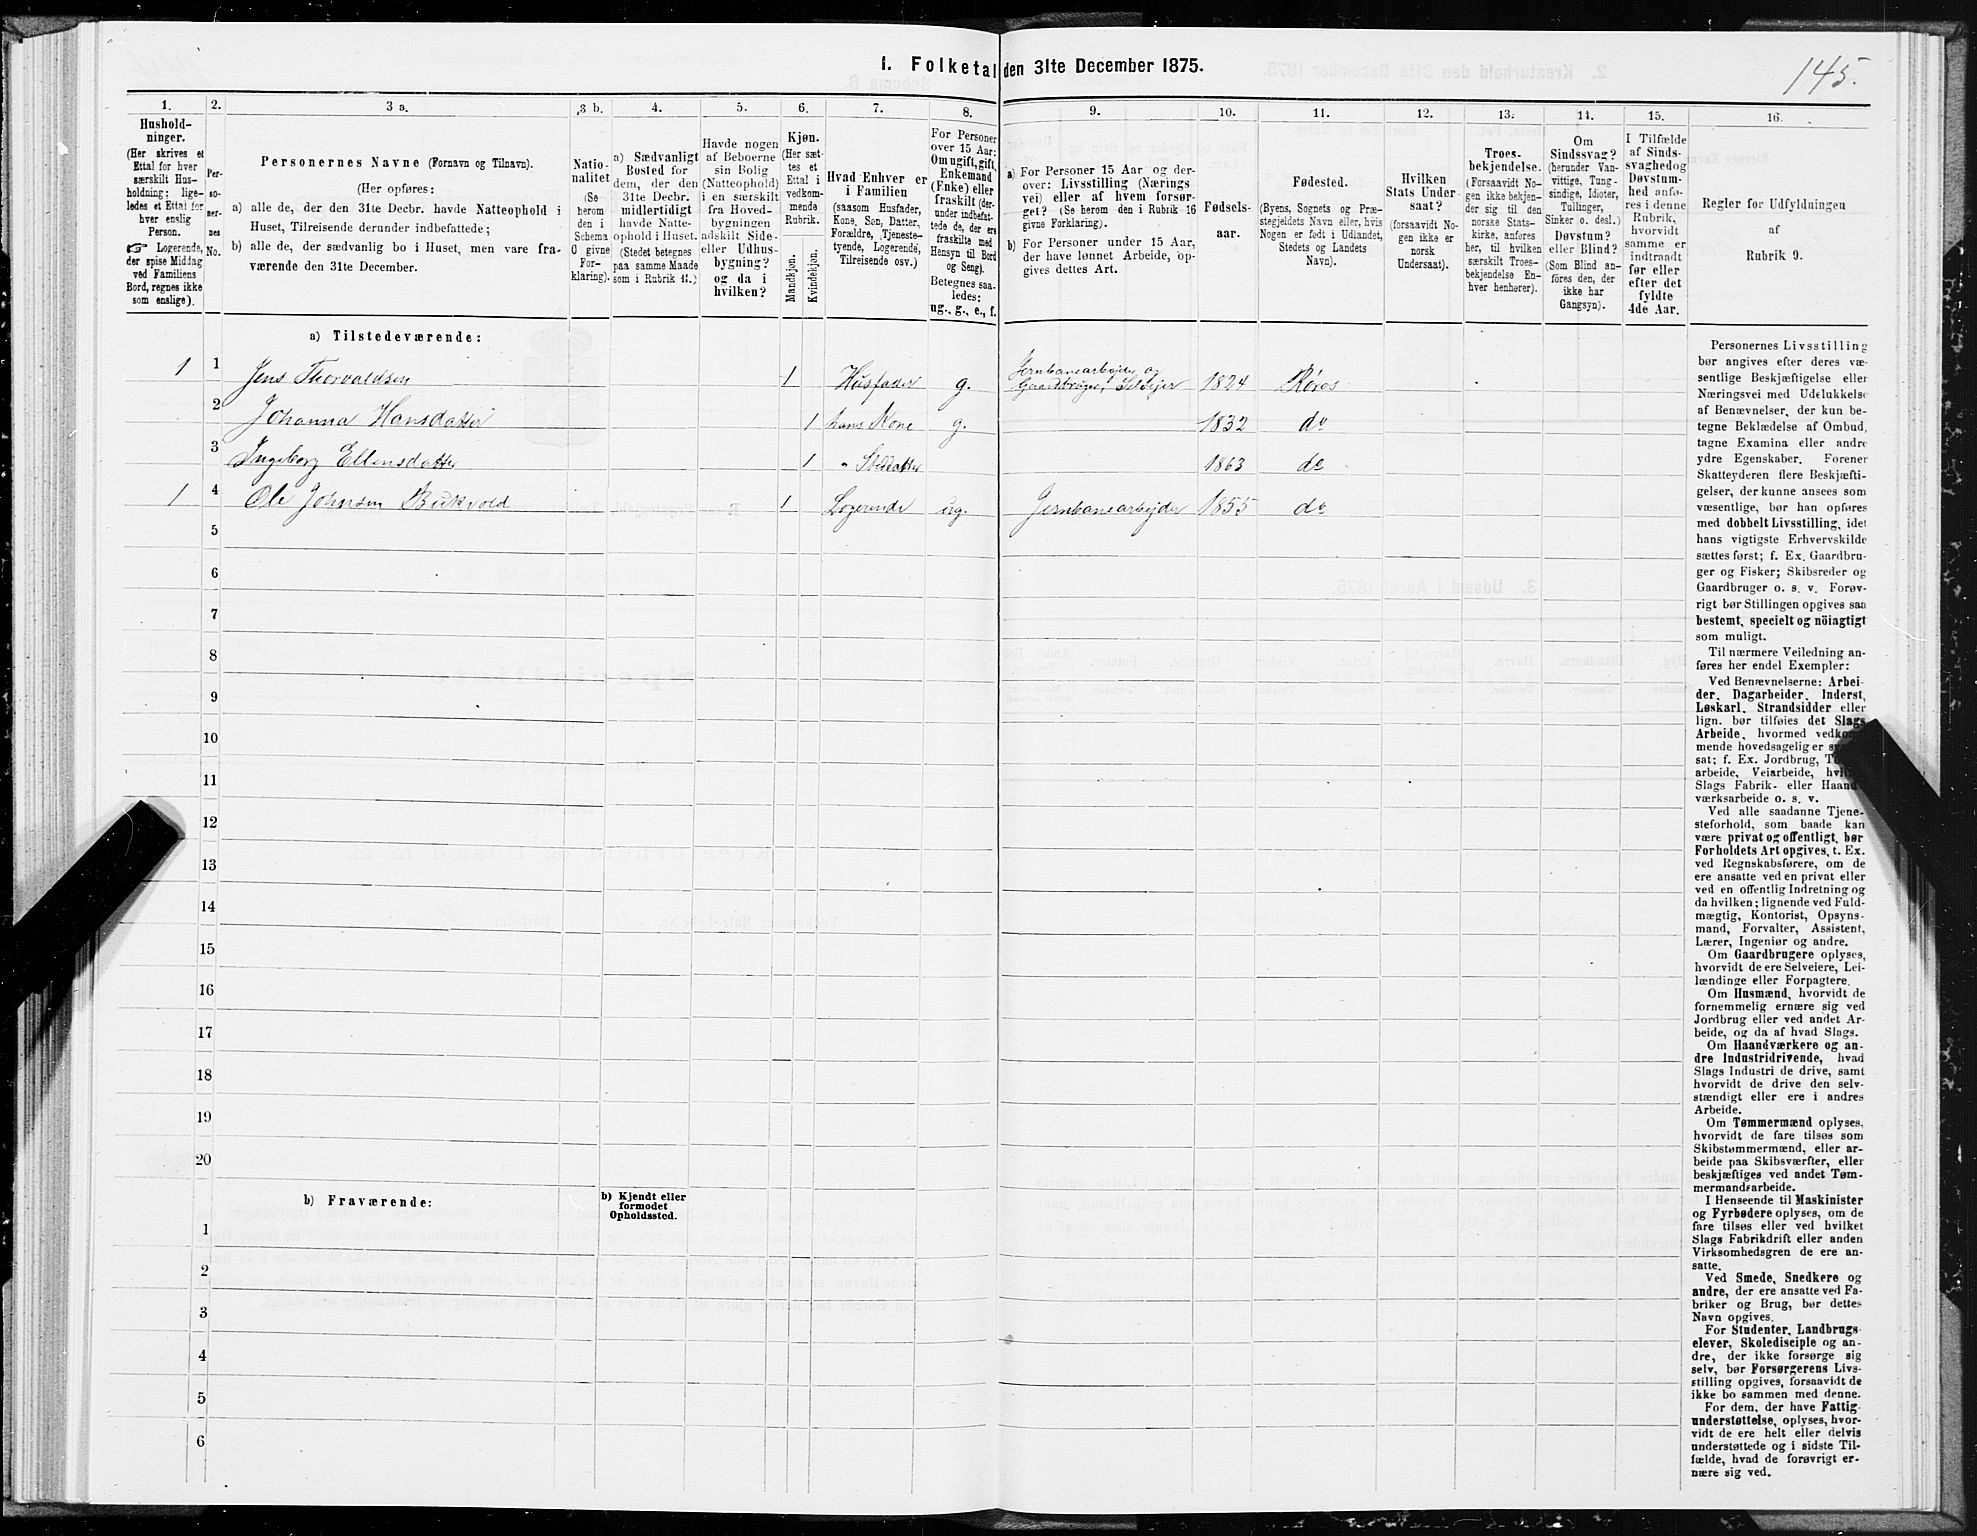 1. Folketal den 31te December 1875.
145.
1.
2.
3 a.
3 b.
4.
5.
6.
7.
8.
9.
10.
11.
12.
13.
14.
15.
16.
Hushold-
ninger.
(Her skrives et
Ettal for hver
særskilt Hus-
holdning; lige-
ledes et Ettal for
hver enslig
Person.
☞ Logerende,
der spise Middag
ved Familiens
Bord, regnes ikke
som enslige).
Per-
so-
ner-
nes
No.
Personernes Navne (Fornavn og Tilnavn).
(Her opføres:
a) alle de, der den 31te Decbr. havde Natteophold i
Huset, Tilreisende derunder indbefattede;
b) alle de, der sædvanlig bo i Huset, men vare fra-
værende den 31te December.
Natio-
nalitet
(Se
herom
den i
Schema
O givne
For-
klaring).
a) Sædvanligt
Bosted for
dem, der den
31te Decbr.
midlertidigt
havde Natte-
ophold i Huset.
(Stedet betegnes
paa samme Maade
som i Rubrik 11.)
Havde nogen
af Beboerne
sin Bolig
(Natteophold)
i en særskilt
fra Hoved-
bygningen
adskilt Side-
eller Udhus-
bygning?
og da i
hvilken?
Kjøn.
(Her sæt-
tes et
Ettal i
vedkom-
mende
Rubrik.
Mandkjøn.
Kvindekjøn.
Hvad Enhver er
i Familien
(saasom Husfader,
Kone, Søn, Datter,
Forældre, Tjeneste-
tyende, Logerende,
Tilreisende osv.)
For Personer
over 15 Aar:
Om ugift, gift,
Enkemand
(Enke) eller
fraskilt (der-
under indbefat-
tede de, der ere
fraskilte med
Hensyn til Bord
og Seng).
Betegnes saa-
ledes:
ug., g., e., f.
a) For Personer 15 Aar og der-
over: Livsstilling (Nærings
vei) eller af hvem forsør-
get? (Se herom den i Rubrik 16
givne Forklaring).
b) For Personer under 15 Aar,
der have lønnet Arbeide, op-
gives dettes Art.
Fødsels-
aar.
Fødested.
(Byens, Sognets og Præ-
stegjeldets Navn eller, hvis
Nogen er født i Udlandet,
Stedets og Landets
Navn).
Hvilken
Stats Under-
saat?
(forsaavidt No-
gen ikke er
norsk
Undersaat).
Troes-
bekjendelse.
(Forsaavidt No-
gen ikke bekjen-
der sig til den
norske Stats-
kirke, anføres
her, til hvilken
særskilt Troes-
bekjendelse En-
hver henhører).
Om
Sindssvag?
(herunder Van-
vittige, Tung-
sindige, Idioter,
Tullinger,
Sinker o. desl.)
Døvstum?
eller Blind?
(Som Blind an-
føres den, der
ikke har
Gangsyn).
I Tilfælde
af Sinds-
svaghed og
Døvstum-
hed anfø-
res i denne
Rubrik,
hvorvidt
samme er
indtraadt
før eller
efter det
fyldte
4de Aar.
Regler for Udfyldningen
af
Rubrik 9.
a) Tilstedeværende:
1 1 Jens Thorvaldsen 1 Husfader g. Jernbanearbejder og
Gaardbruger, Selvejer 1824 Røros
2 Johanna Hansdatter 1 hans Kone g. 1832 do
3 Ingeborg Ellensdatter 1 " Steddatter 1863 do
1 4 Ole Johnsen Bukvold 1 Logerende ug. Jernbanearbejder 1855 do
5
6
7
8
9
10
11
12
13
14
15
16
17
18
19
20
b) Fraværende:
b) Kjendt eller
formodet
Opholdssted.
1
2
3
4
5
6
Personernes Livsstilling
bør angives efter deres væ-
sentlige Beskjæftigelse eller
Næringsvei med Udelukkelse
af Benævnelser, der kun be-
tegne Beklædelse af Ombud,
tagne Examina eller andre
ydre Egenskaber. Forener
Skatteyderen flere Beskjæfti-
gelser, der kunne ansees som
væsentlige, bør han opføres
med dobbelt Livsstilling, idet
hans vigtigste Erhvervskilde
sættes først; f. Ex. Gaardbru-
ger og Fisker; Skibsreder og
Gaardbruger o. s. v. Forøv-
rigt bør Stillingen opgives saa
bestemt, specielt og nöiagtigt
som muligt.
Til nærmere Veiledning an-
føres her endel Exempler:
Ved Benævnelserne: Arbei-
der, Dagarbeider, Inderst,
Løskarl, Strandsidder eller
lign. bør tilføies det Slags
Arbeide, hvormed vedkom-
mende hovedsagelig er
sat; f. Ex. Jordbrug,
arbeide, Veiarbeide,
Slags Fabrik- eller Haand-
værksarbeide o. s. v.
Ved alle saadanne Tjene-
steforhold, som baade kan
være privat og offentligt, bør
Forholdets Art opgives, t. Ex.
ved Regnskabsførere, om de
ere ansatte ved en privat eller
ved en offentlig Indretning og
da hvilken; lignende ved Fuld-
mægtig, Kontorist, Opsyns-
mand, Forvalter, Assistent,
Lærer, Ingeniør og andre.
Om Gaardbrugere oplyses,
hvorvidt de ere Selveiere, Lei-
lændinge eller Forpagtere.
Om Husmænd, hvorvidt de
fornemmelig ernære sig ved
Jordbrug eller ved andet Ar-
beide, og da af hvad Slags.
Om Haandværkere og an-
dre Industridrivende, hvad
Slags Industri de drive, samt
hvorvidt de drive den selv-
stændigt eller ere i andres
Arbeide.
Om Tømmermænd oplyses,
hvorvidt de fare tilsøs som
Skibstømmermænd, eller ar-
beide paa Skibsværfter, eller
beskjæftiges ved andet Tøm-
mermandsarbeide.
I Henseende til Maskinister
og Fyrbødere oplyses, om de
fare tilsøs eller ved hvilket
Slags Fabrikdrift eller anden
Virksomhedsgren de ere an-
satte.
Ved Smede, Snedkere og
andre, der ere ansatte ved Fa-
briker og Brug, bør dettes
Navn opgives.
For Studenter, Landbrugs-
elever, Skoledisciple og an-
dre, der ikke forsørge sig
selv, bør Forsørgerens Livs-
stilling opgives, forsaavidt de
ikke bo sammen med denne.
For dem, der have Fattig-
understøttelse, oplyses, hvor-
vidt de ere helt eller delvis
understøttede og i sidste Til-
fælde, hvad de forøvrigt er-
nære sig ved.